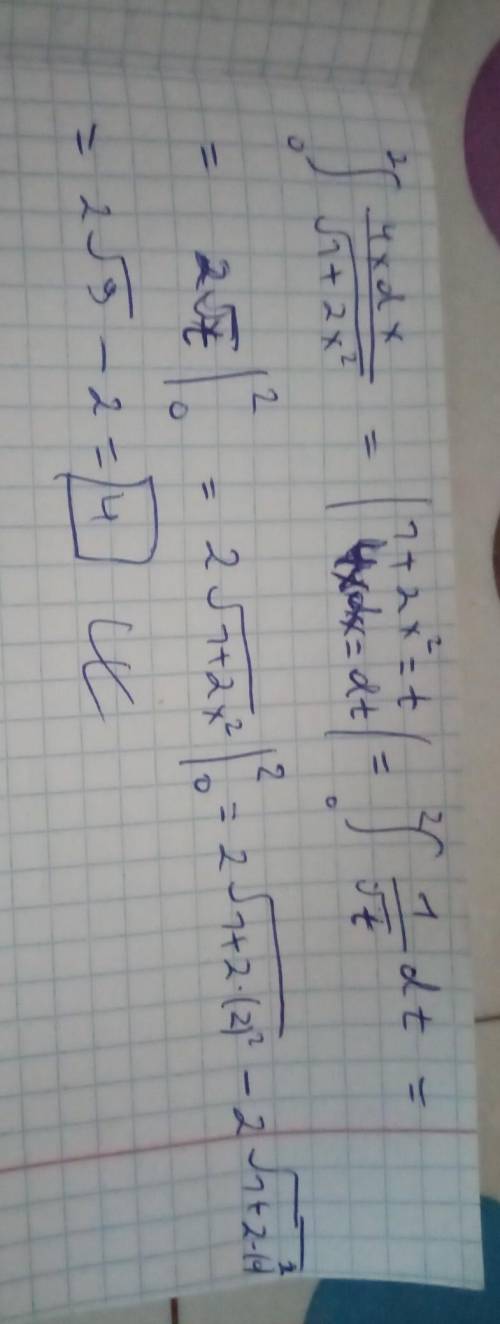 ∫₀² 4xdx/√(1+2x²) = |1+2x²=t 4xdx=dt| = ∫₀² 1/√t dt =
= 2√t |₀² = 2√(1+2x²) |₀² = 2√(1+2·(2)²) - 2√(1+2·
= 2√9 - 2 = 4